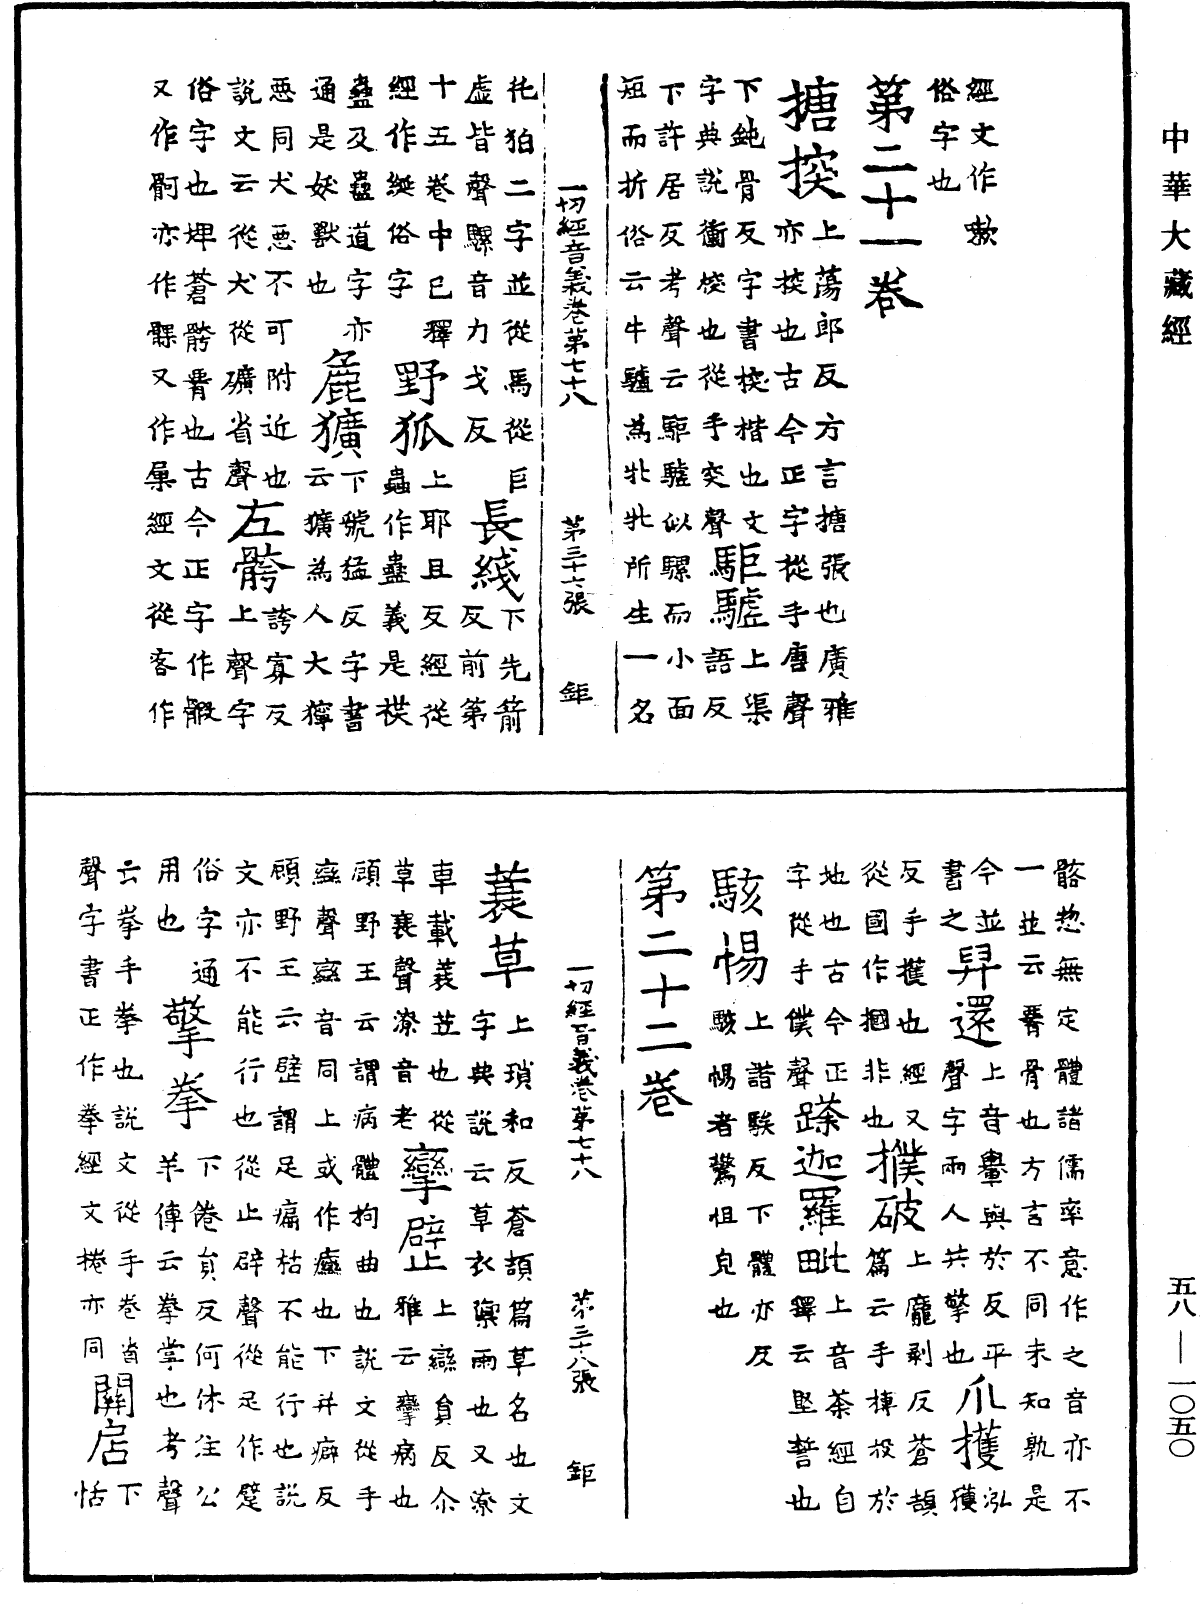 中華大藏經
經文作嗽
俗字也
第二十一卷
搪揬 上蕩郎反方言搪張也廣雅
亦揬也古今正字從手唐聲
下鈍骨反字書揬楷也文
字典說衝揬也從手突聲 駏驉 上渠
語反
下許居反考聲云駏驉似騾而小面
短而折俗云牛驢為牝牡所生一名
一切經音義卷第七十八 第三十六張 鉅
㹀狛二字並從馬從巨
虛皆聲騾音力戈反 長綫 下先箭
反前第
十五卷中已釋
經作綖俗字 野狐 上耶且反經從
蟲作蠱義是襈
蠱及蠱道字亦
通是妖獸也 麁獷 下虢猛反字書
云獷為人大獰
惡同犬惡不可附近也
說文云從犬從礦省聲 左髂 誇寡反
上聲字
俗字也埤蒼髂䯊也古今正字作骻
又作骬亦作髁又作㾄經文從客作
髂惣無定體諸儒率意作之音亦不
一並云䯊骨也方言不同未知孰是
今並
書之 舁還 上音轝與於反平
聲字兩人共擎也 爪攫 泓
獲
反手攫也經又
從國作摑非也 撲破 上龐剥反蒼頡
篇云手搏投於
地也古今正
字從手僕聲 蹂迦羅毗 上音茶經自
釋云堅誓也
駭惕 上諧駭反下體亦反
駭惕者驚怛皃也
第二十二卷
一切經音義卷第七十八 第三十八張 鉅
蓑草 上瑣和反蒼頡篇草名也文
字典說云草衣禦雨也又潦
車載蓑苙也從
草衰聲潦音老 攣躄 上戀負反尒
雅云攣病也
顧野王云謂病體拘曲也說文從手
䜌聲䜌音同上或作癴也下并癖反
顧野王云躄謂足痛枯不能行也說
文亦不能行也從止辟聲從足作躄
俗字通
用也 擎拳 下倦負反何休注公
羊傳云拳掌也考聲
云拳手拳也說文從手卷省
聲字書正作拳經文捲亦同 關扂 下
恬
五八—一〇五〇